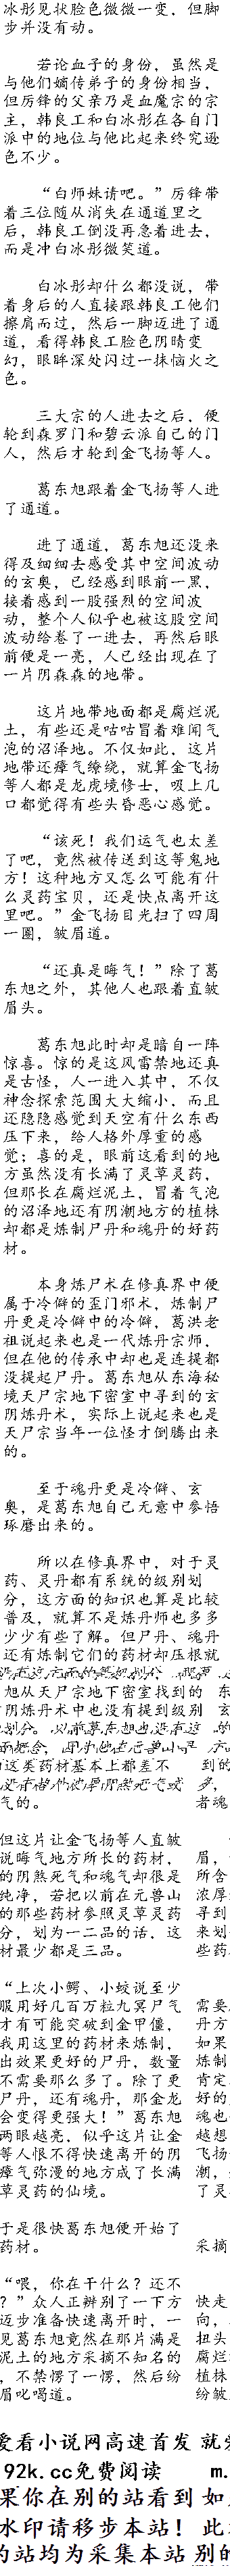 冰彤见状脸色微微一变，但脚
步并没有动。
若论血子的身份，虽然是
与他们嫡传弟子的身份相当，
但厉锋的父亲乃是血魔宗的宗
主，韩良工和白冰彤在各自门
派中的地位与他比起来终究逊
色不少。
“白师妹请吧。”厉锋带
着三位随从消失在通道里之
后，韩良工倒没再急着进去，
而是冲白冰彤微笑道。
白冰彤却什么都没说，带
着身后的人直接跟韩良工他们
擦肩而过，然后一脚迈进了通
道，看得韩良工脸色阴晴变
幻，眼眸深处闪过一抹恼火之
色。
三大宗的人进去之后，便
轮到森罗门和碧云派自己的门
人，然后才轮到金飞扬等人。
葛东旭跟着金飞扬等人进
了通道。
进了通道，葛东旭还没来
得及细细去感受其中空间波动
的玄奥，已经感到眼前一黑，
接着感到一股强烈的空间波
动，整个人似乎也被这股空间
波动给卷了一进去，再然后眼
前便是一亮，人已经出现在了
一片阴森森的地带。
这片地带地面都是腐烂泥
土，有些还是咕咕冒着难闻气
泡的沼泽地。不仅如此，这片
地带还瘴气缭绕，就算金飞扬
等人都是龙虎境修士，吸上几
口都觉得有些头昏恶心感觉。
“该死！我们运气也太差
了吧，竟然被传送到这等鬼地
方！这种地方又怎么可能有什
么灵药宝贝，还是快点离开这
里吧。”金飞扬目光扫了四周
一圈，皱眉道。
“还真是晦气！”除了葛
东旭之外，其他人也跟着直皱
眉头。
葛东旭此时却是暗自一阵
惊喜。惊的是这风雷禁地还真
是古怪，人一进入其中，不仅
神念探索范围大大缩小，而且
还隐隐感觉到天空有什么东西
压下来，给人格外厚重的感
觉；喜的是，眼前这看到的地
方虽然没有长满了灵草灵药，
但那长在腐烂泥土，冒着气泡
的沼泽地还有阴潮地方的植株
却都是炼制尸丹和魂丹的好药
材。
本身炼尸术在修真界中便
属于冷僻的歪门邪术，炼制尸
丹更是冷僻中的冷僻，葛洪老
祖说起来也是一代炼丹宗师，
但在他的传承中却也是连提都
没提起尸丹。葛东旭从东海秘
境天尸宗地下密室中寻到的玄
阴炼丹术，实际上说起来也是
天尸宗当年一位怪才倒腾出来
的。
至于魂丹更是冷僻、玄
奥，是葛东旭自己无意中参悟
琢磨出来的。
所以在修真界中，对于灵
药、灵丹都有系统的级别划
分，这方面的知识也算是比较
普及，就算不是炼丹师也多多
少少有些了解。但尸丹、魂丹
还有炼制它们的药材却压根就
旭从天尸宗地下密室找到的 东
阴炼丹术中也没有提到级别 玄
这类药材基本上都差不 到的
多，
气的。 者魂
但这片让金飞扬等人直皱
说晦气地方所长的药材， 眉，
的阴煞死气和魂气却很是 所含
纯净，若把以前在元兽山 浓厚
的那些药材参照灵草灵药 寻到
分，划为一二品的话，这 来划
材最少都是三品。 些药
“上次小鳄、小蛟说至少
服用好几百万粒九冥尸气 需要
才有可能突破到金甲僵， 丹方
我用这里的药材来炼制， 如果
出效果更好的尸丹，数量 炼制
不需要那么多了。除了更 肯定
尸丹，还有魂丹，那金龙 好的
会变得更强大！”葛东旭 魂也
两眼越亮，似乎这片让金 越想
等人恨不得快速离开的阴 飞扬
瘴气弥漫的地方成了长满 潮，
草灵药的仙境。 了灵
于是很快葛东旭便开始了
药材。 采摘
“喂，你在干什么？还不
？”众人正辨别了一下方 快走
迈步准备快速离开时，一 向，
见葛东旭竟然在那片满是 扭头
泥土的地方采摘不知名的 腐烂
，不禁愣了一愣，然后纷 植株
眉叱喝道。 纷皱
爱看小说网高速首发 就
92k.cc免费阅读 m.
果你在别的站看到 如
水印请移步本站！ 此
的站均为采集本站 别的